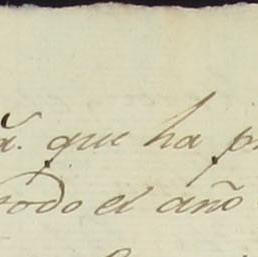 que ha
todo el año